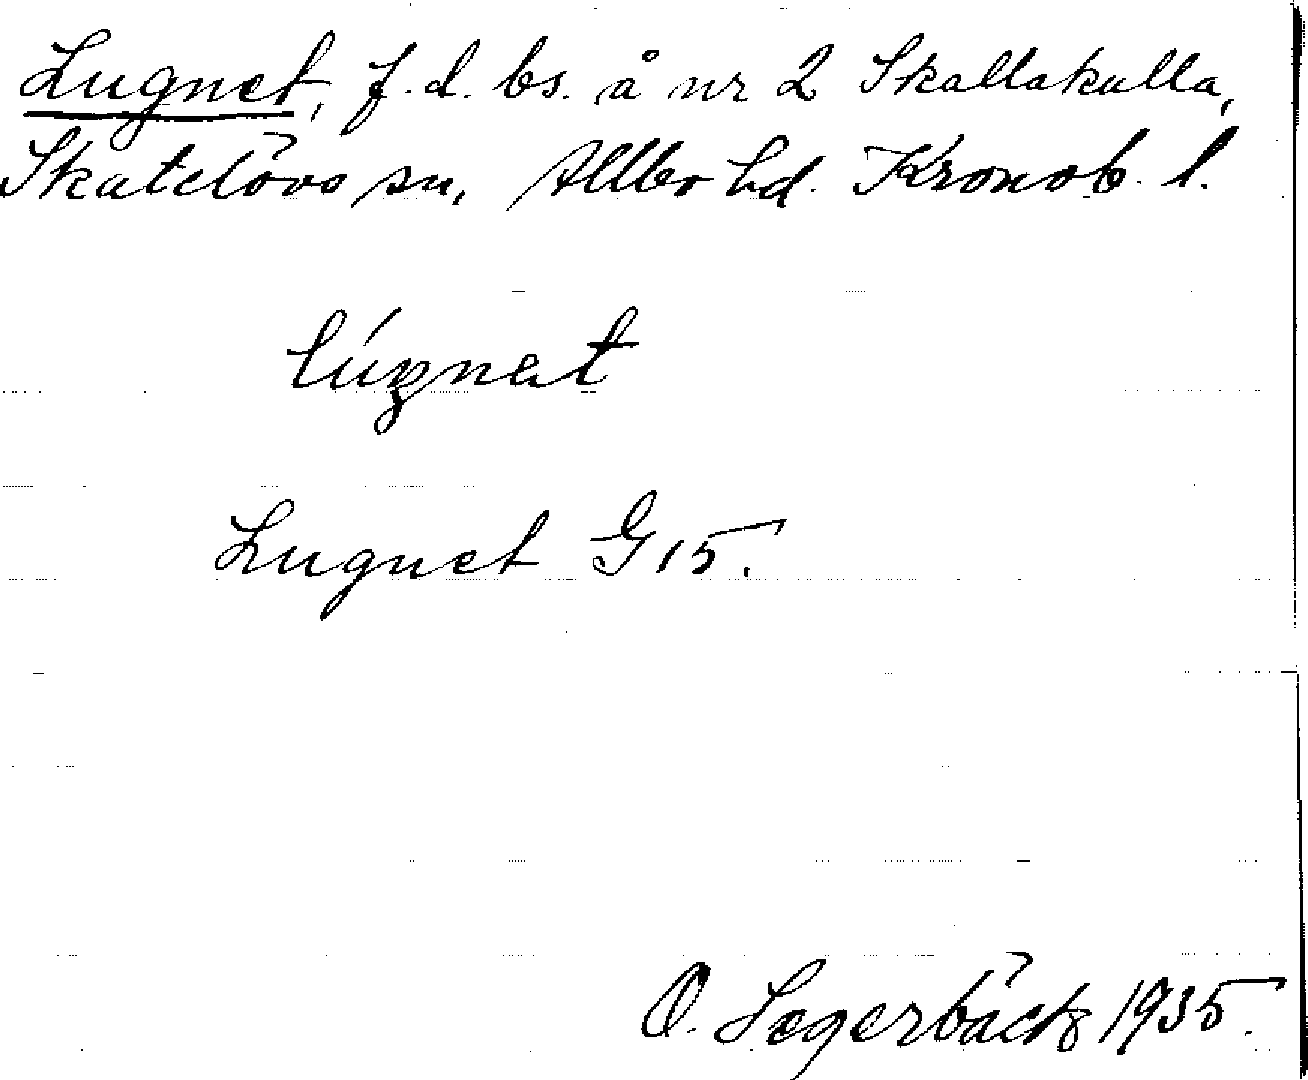 Lugnet, f.d. bs. å nr 2 Skallakulla,
Skatelövs sn, Allbo hd. Kronob. l.
lúŋnət
Lugnet G 15.
O. Segerbäck 1935.